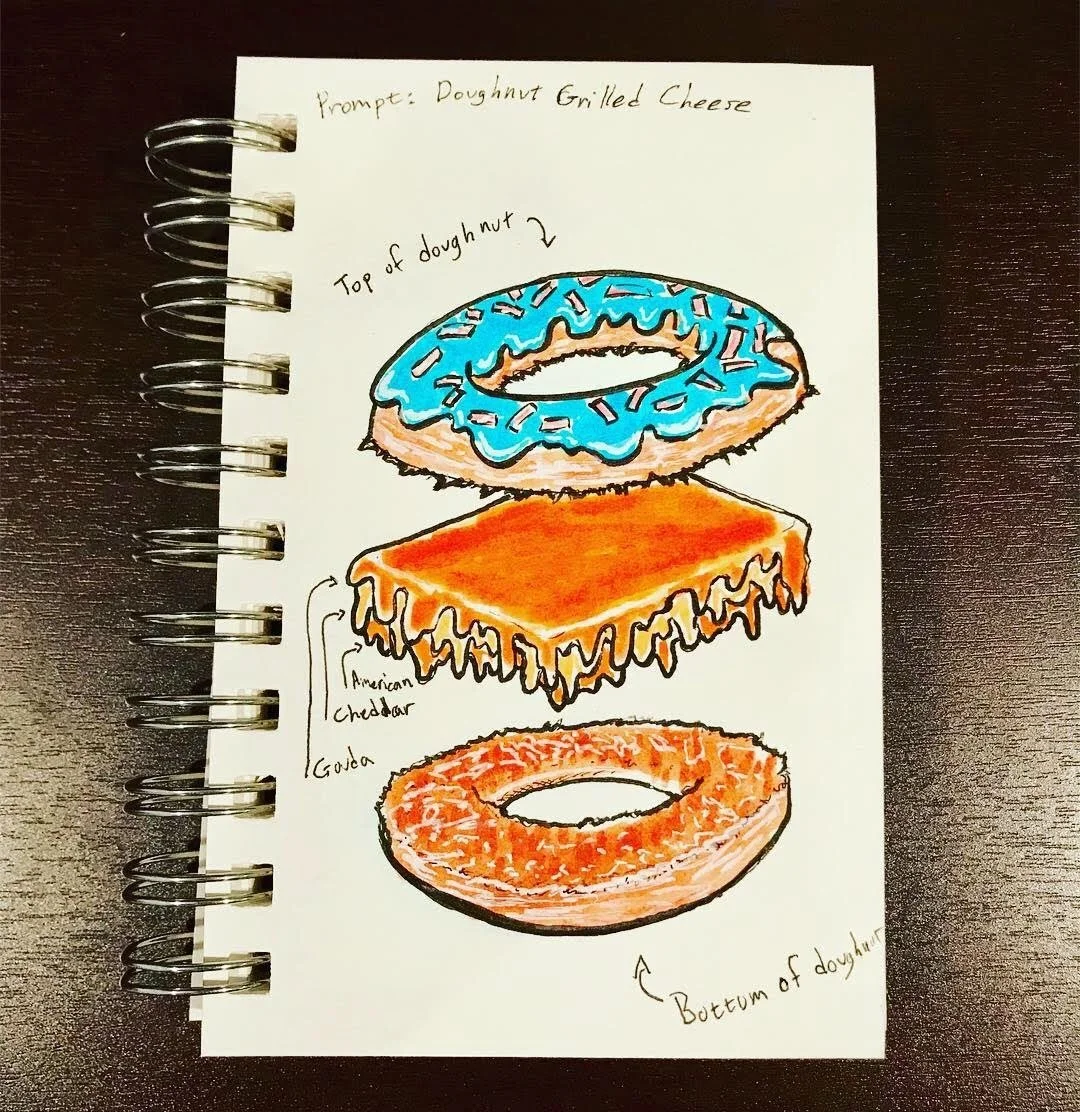 Prompt: Doughnut Grilled Cheese
Top of doughnut
American
Cheddar
Gouda
Bottom of doughnut